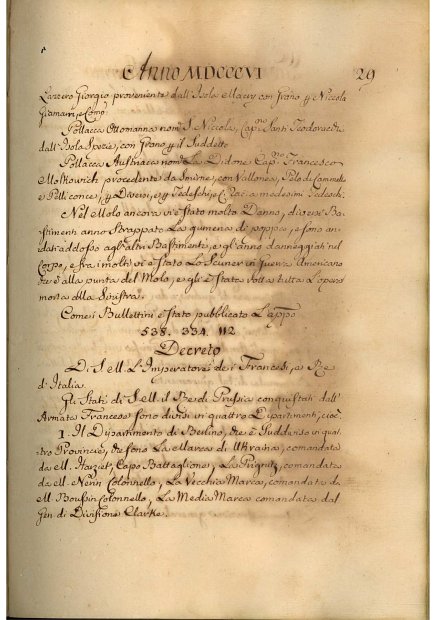 Anno MDCCCVI 29
Lazzero Giorgio proveniente dall'Isola Mauri con Grano, p Niccola
Gramarri, e Comp
Pollacca Ottomanna nom S. Niccola, Cap.no Santi Teodoracchi
dall'Isola Spezie, con Grano p il Suddetto
Pollacca Austriaca nom La Didone Cap.no Francesco
Moskowich procedente da Smirne, con Vallonea, Pelo di Cammello
e Pelli conce, p Diversi, e p Tedeschi, e a medesimi Tedeschi.
Nel Molo ancora vi è stato molto Danno, diversi Ba-
stimenti anno Strappato La gumena di poppa, e sono an-
dati addosso agl'altri Bastimenti, e gl'anno danneggiati nel
Corpo, e fra i molti vi è stato Lo Scuner in Guerra Americano
che è alla punta del Molo, e gli è stato rotta tutta l'opera
morta alla Sinistra.
Come i Bullettini è stato pubblicato L'app.o
538. 334. 112
Decreto
Di S. e M. L'Imperatore de i Francesi, e Re
d'Italia.
Gli Stati di S. e M. il Re di Prussia conquistati dall'
Armata Francese sono divisi in quattro Dipartimenti, cioè
1. Il Dipartimento di Berlino, che è Suddiviso in quat-
tro Provincie, che sono La Marca di Ukraina, comandata
da M. Capo Battaglione, La Prignitz, comandata
da M. Colonnello, La Vecchia Marca, comandata da
M. Boussin Colonnello, La Media Marca comandata dal
Gen di Divisione Clarke.